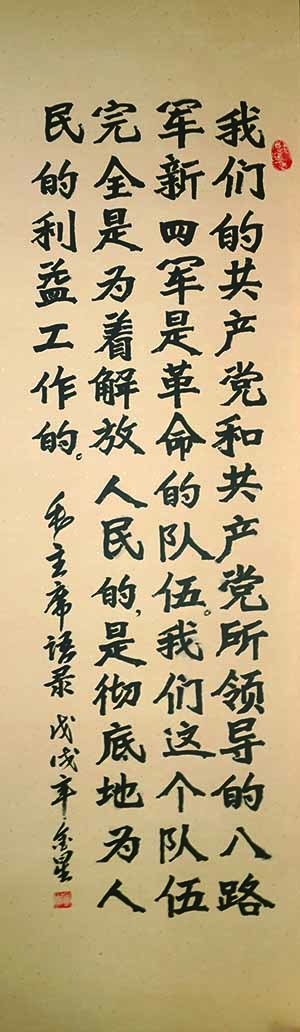 我们的共产党和共产党所领导的八路
军新四军是革命的队伍。我们这个队伍
完全是为着解放人民的,是彻底地为人
民的利益工作的。
毛主席语录 戊戌年金星